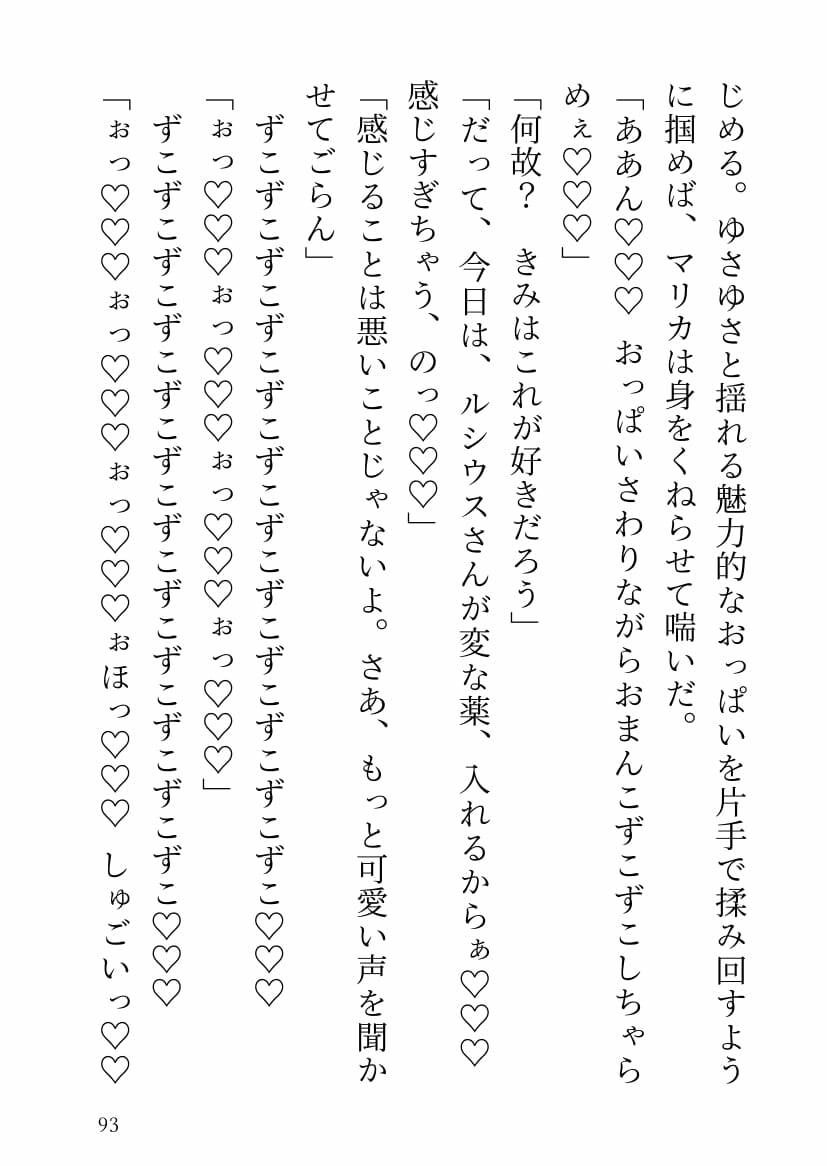 じめる。ゆさゆさと揺れる魅力的なおっぱいを片手で揉み回すよう
に掴めば、マリカは身をくねらせて喘いだ。
「ああん♡♡♡　おっぱいさわりながらおまんこずこずこしちゃら
めぇ♡♡♡」
「何故？　きみはこれが好きだろう」
「だって、今日は、ルシウスさんが変な薬、入れるからぁ♡♡♡
感じすぎちゃう、のっ♡♡♡」
「感じることは悪いことじゃないよ。さあ、もっと可愛い声を聞か
せてごらん」
　ずこずこずこずこずこずこずこずこずこずこずこずこ♡♡♡
「ぉっ♡♡♡ぉっ♡♡♡ぉっ♡♡♡ぉっ♡♡♡」
　ずこずこずこずこずこずこずこずこずこずこずこずこ♡♡♡
「ぉっ♡♡♡ぉっ♡♡♡ぉっ♡♡♡ぉほっ♡♡♡　しゅごいっ♡♡
93